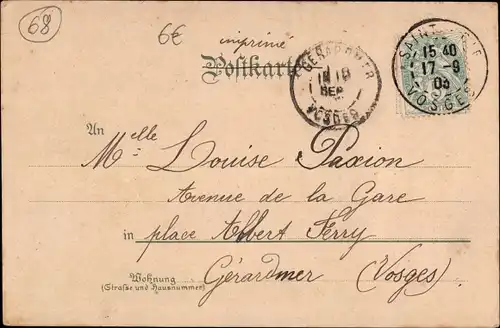 68
6€
imprimé
Postkarte
GERARDMER
18
SEP
VOSGES
SAINT
15 40
17 - 9
03
VOSGES
An
Melle Louise Paxion
Avenue de la Gare
in place Albert Ferry
Wohnung
(Straße und Hausnummer)
Gérardmer (Vosges)